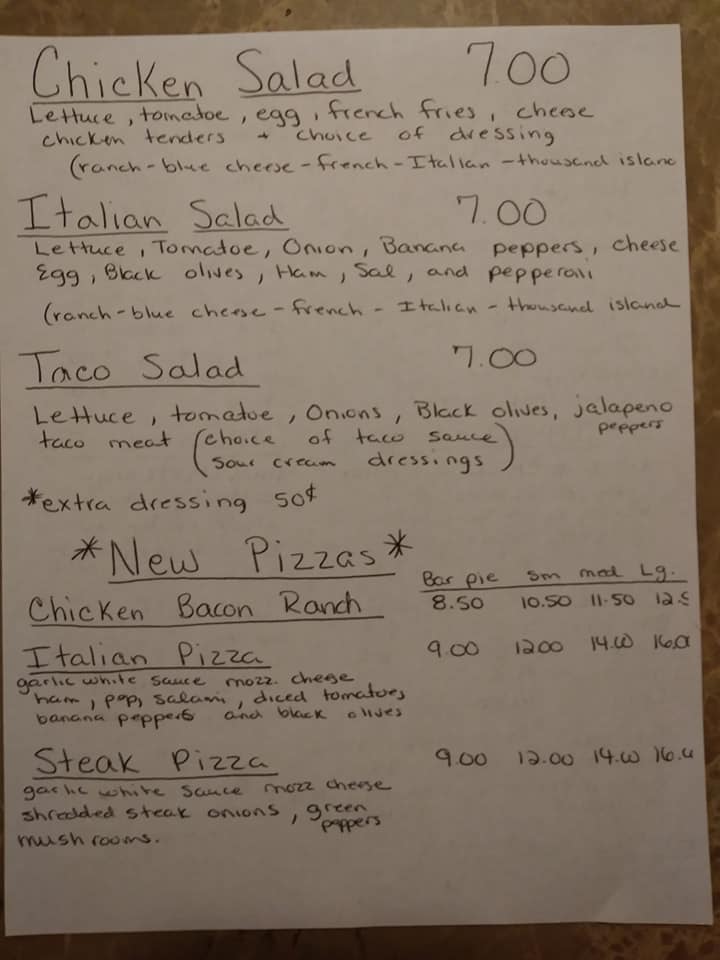 Chicken Salad 7.00
Lettuce, tomatoe, egg, french fries, cheese
chicken tenders + choice of dressing
(ranch-blue cheese-french-Italian-thousand islanc
Italian Salad 7.00
Lettuce, Tomatoe, Onion, Banana peppers, cheese
Egg, Black olives, Ham, Sal, and pepperoni
(ranch-blue cheese-french-Italian-thousand island
Taco Salad 7.00
Lettuce, tomatoe, Onions, Black olives, jalapeno
peppers
taco meat (choice of taco sauce
sour cream dressings)
*extra dressing 50¢
*New Pizzas*
Bar pie sm med Lg.
Chicken Bacon Ranch 8.50 10.50 11.50 12.5
Italian Pizza 9.00 12.00 14.00 16.0
garlic white sauce mozz. cheese
ham, pep, salami, diced tomatoes
banana peppers and black olives
Steak Pizza 9.00 12.00 14.00 16.0
garlic white sauce mozz cheese
shredded steak onions, green
peppers
mushrooms.